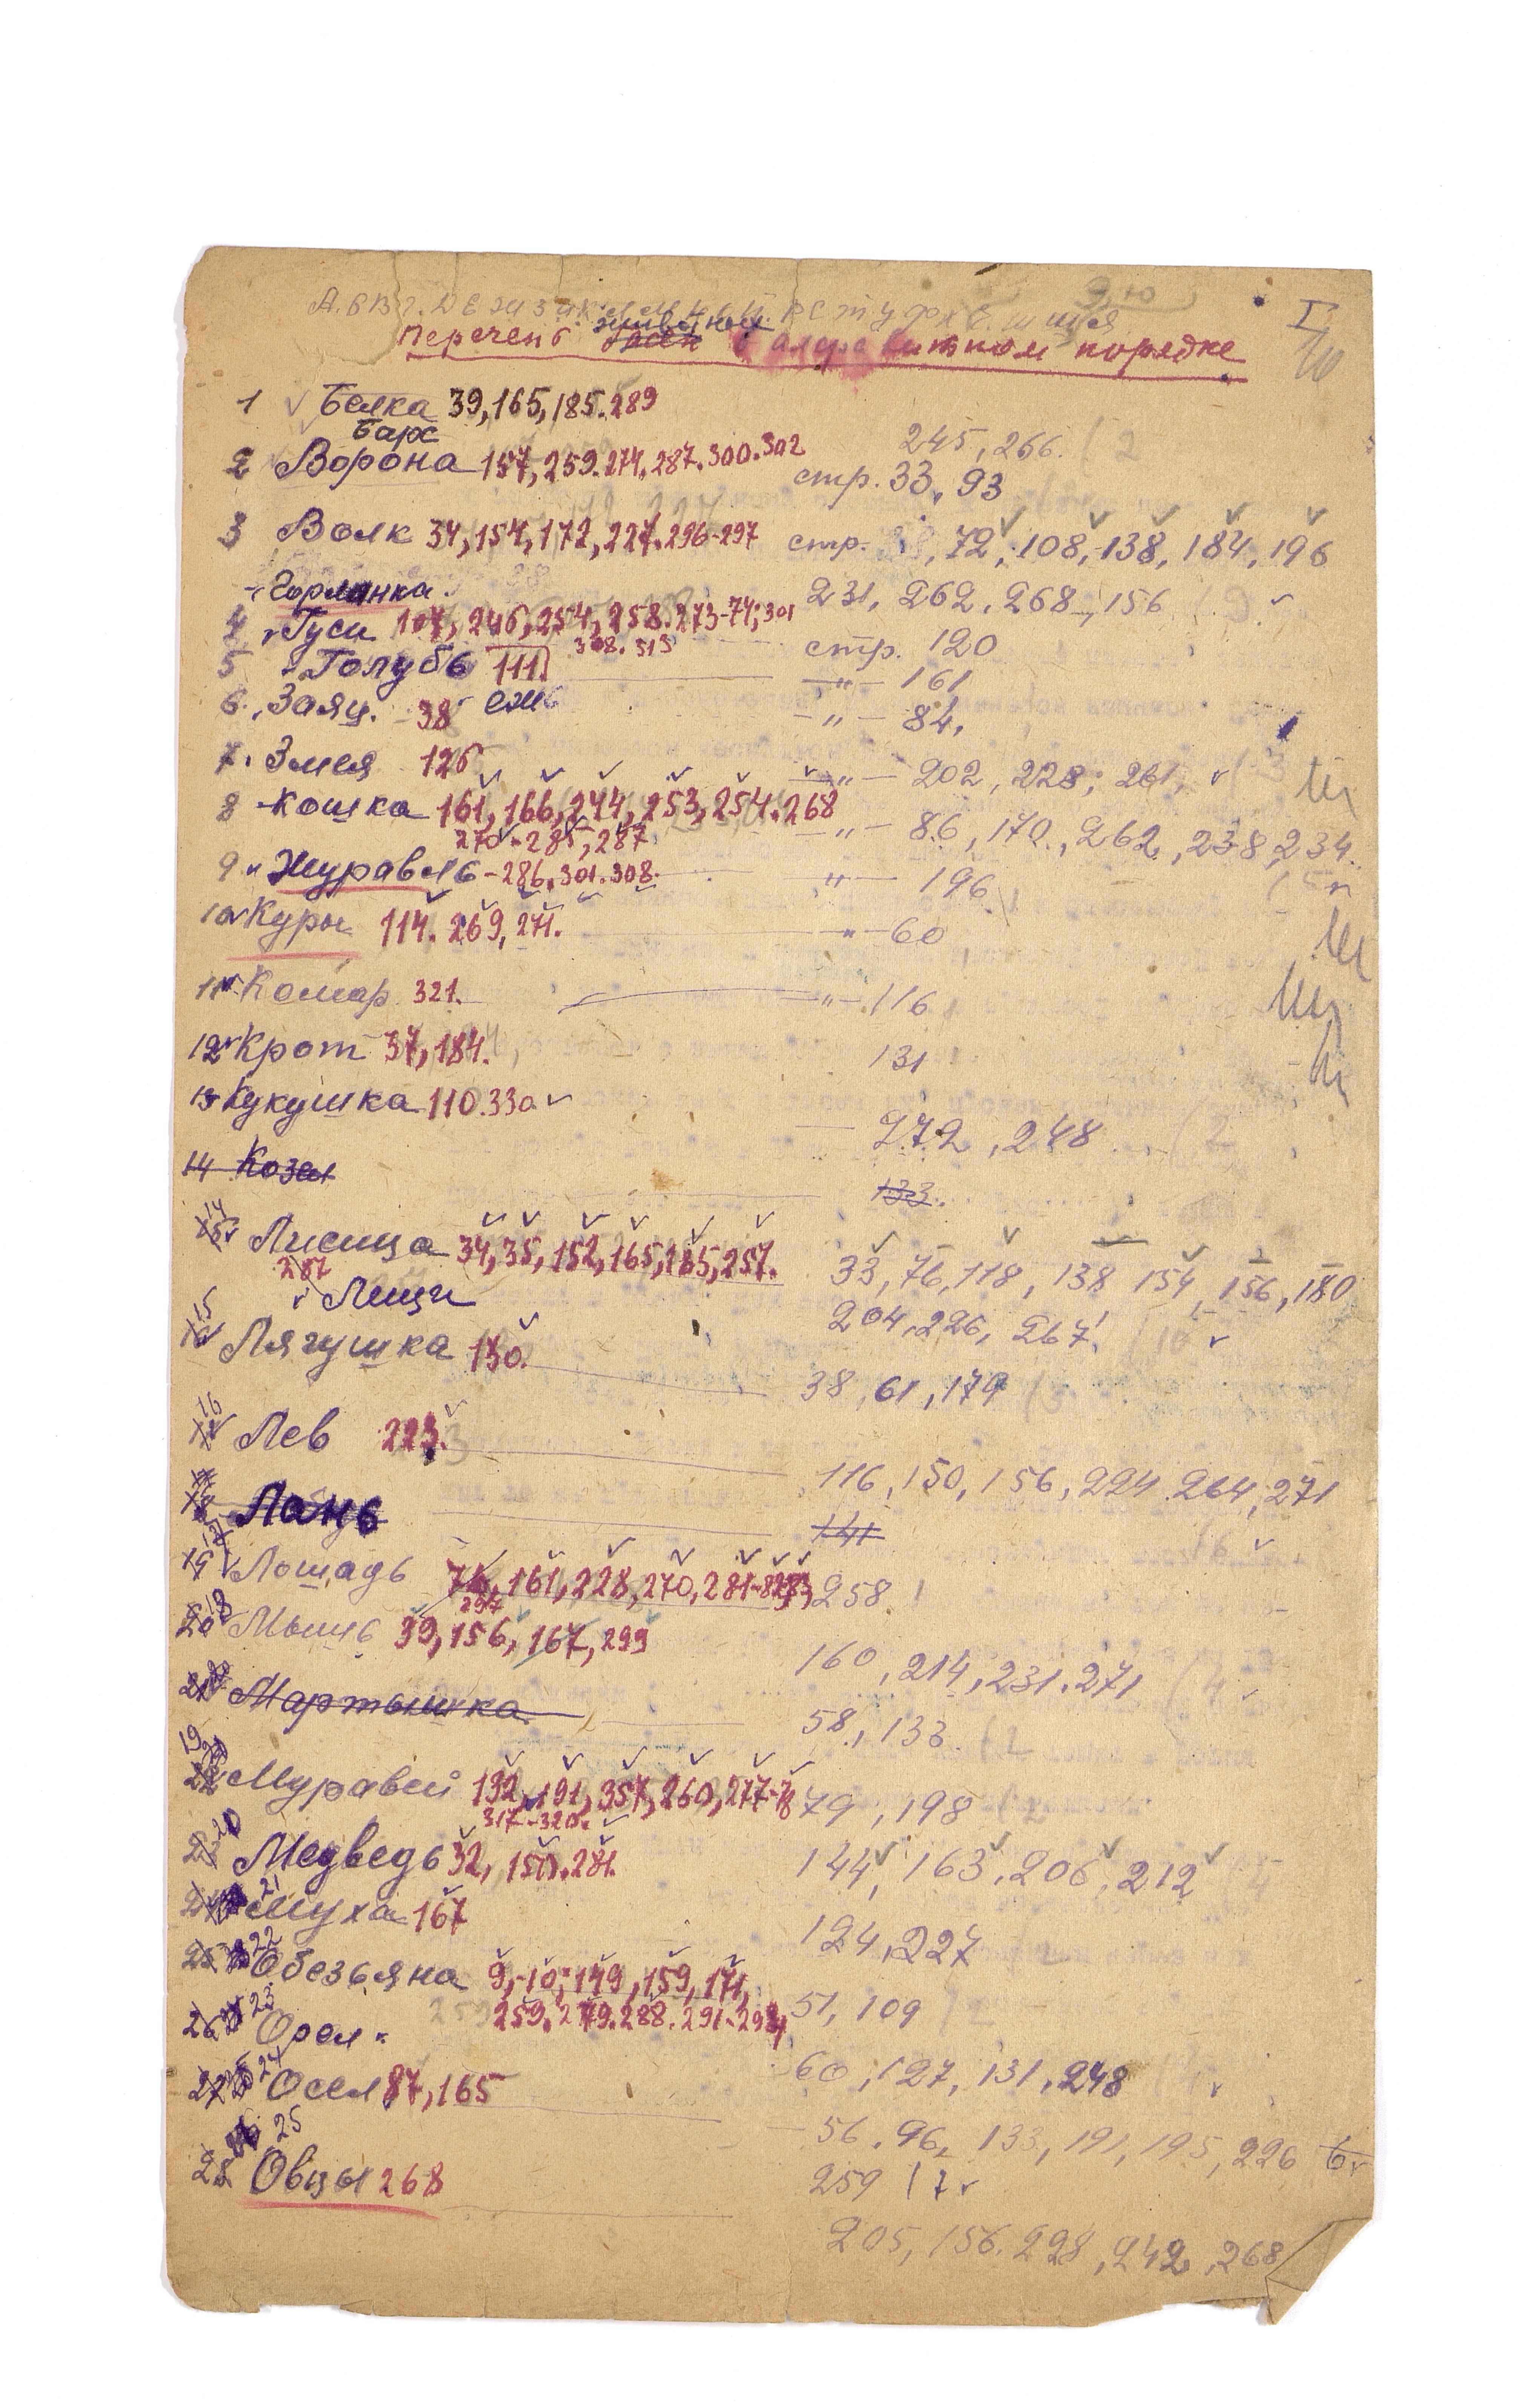 А. Б В Г. Д Е Ж З И К Л М Н О П. Р С Т У Ф Х Ш Щ Я
Э, Ю
I
10
Перечень животных в алфавитном порядке
1 Белка 39, 165, 185. 289
Барс
245, 266. (2
2 Ворона 157, 259. 274. 287. 300. 302
стр. 33, 93
3 Волк 34, 154, 172, 227. 296-297
стр. , 72, 108, 138, 184, 196
Горлинка.
231, 262, 268, 156
4 Гуси 107, 246, 254, 258. 273-74; 301
308. 313
стр. 120
5 Голубь 111.
—"— 161
6. Заяц. 38 еж
—"— 84,
7. Змея 126
—"— 202, 228; 261,
8 Кошка 161, 166, 244, 253, 254. 268
270-285, 287
—"— 86, 170., 262, 238, 234.
9 Журавль - 286. 301. 308.
"— 196
10 Куры 114. 269, 271.
"— 60
11 Комар 321.
—"— 116
12 Крот 37, 184.
131
13 Кукушка 110. 330
272, 248 (2
14 Козел
133.
14 Лисица 34, 35, 152, 165, 185, 257.
287
33, 76, 118, 138 154, 156, 180
Лещи
204, 226, 267! (10
15 Лягушка 130.
38, 61, 179 (3
16 Лев 223.
116, 150, 156, 224. 264, 271
18 Лань
141
19 Лошадь 76, 161, 228, 270, 281-82
297
258
20 18 Мышь 39, 156, 167, 299
160, 214, 231. 271 (4
21 Мартышка
58., 133.
19 22 Муравей 192, 191, 357, 260, 277-78
317-320.
79, 198 (2
20 Медведь 32, 150. 281.
144, 163, 206, 212
21 Муха 167
124, 227
25 22 Обезьяна 9,-10; 149, 159, 171,
259. 279. 288. 291-293
51, 109
26 23 Орел
60, 127, 131, 248
27 24 Осел 87, 165
56, 96, 133, 191, 195, 226 6
25
259 (7
28 Овцы 268
205, 156. 228, 242, 268